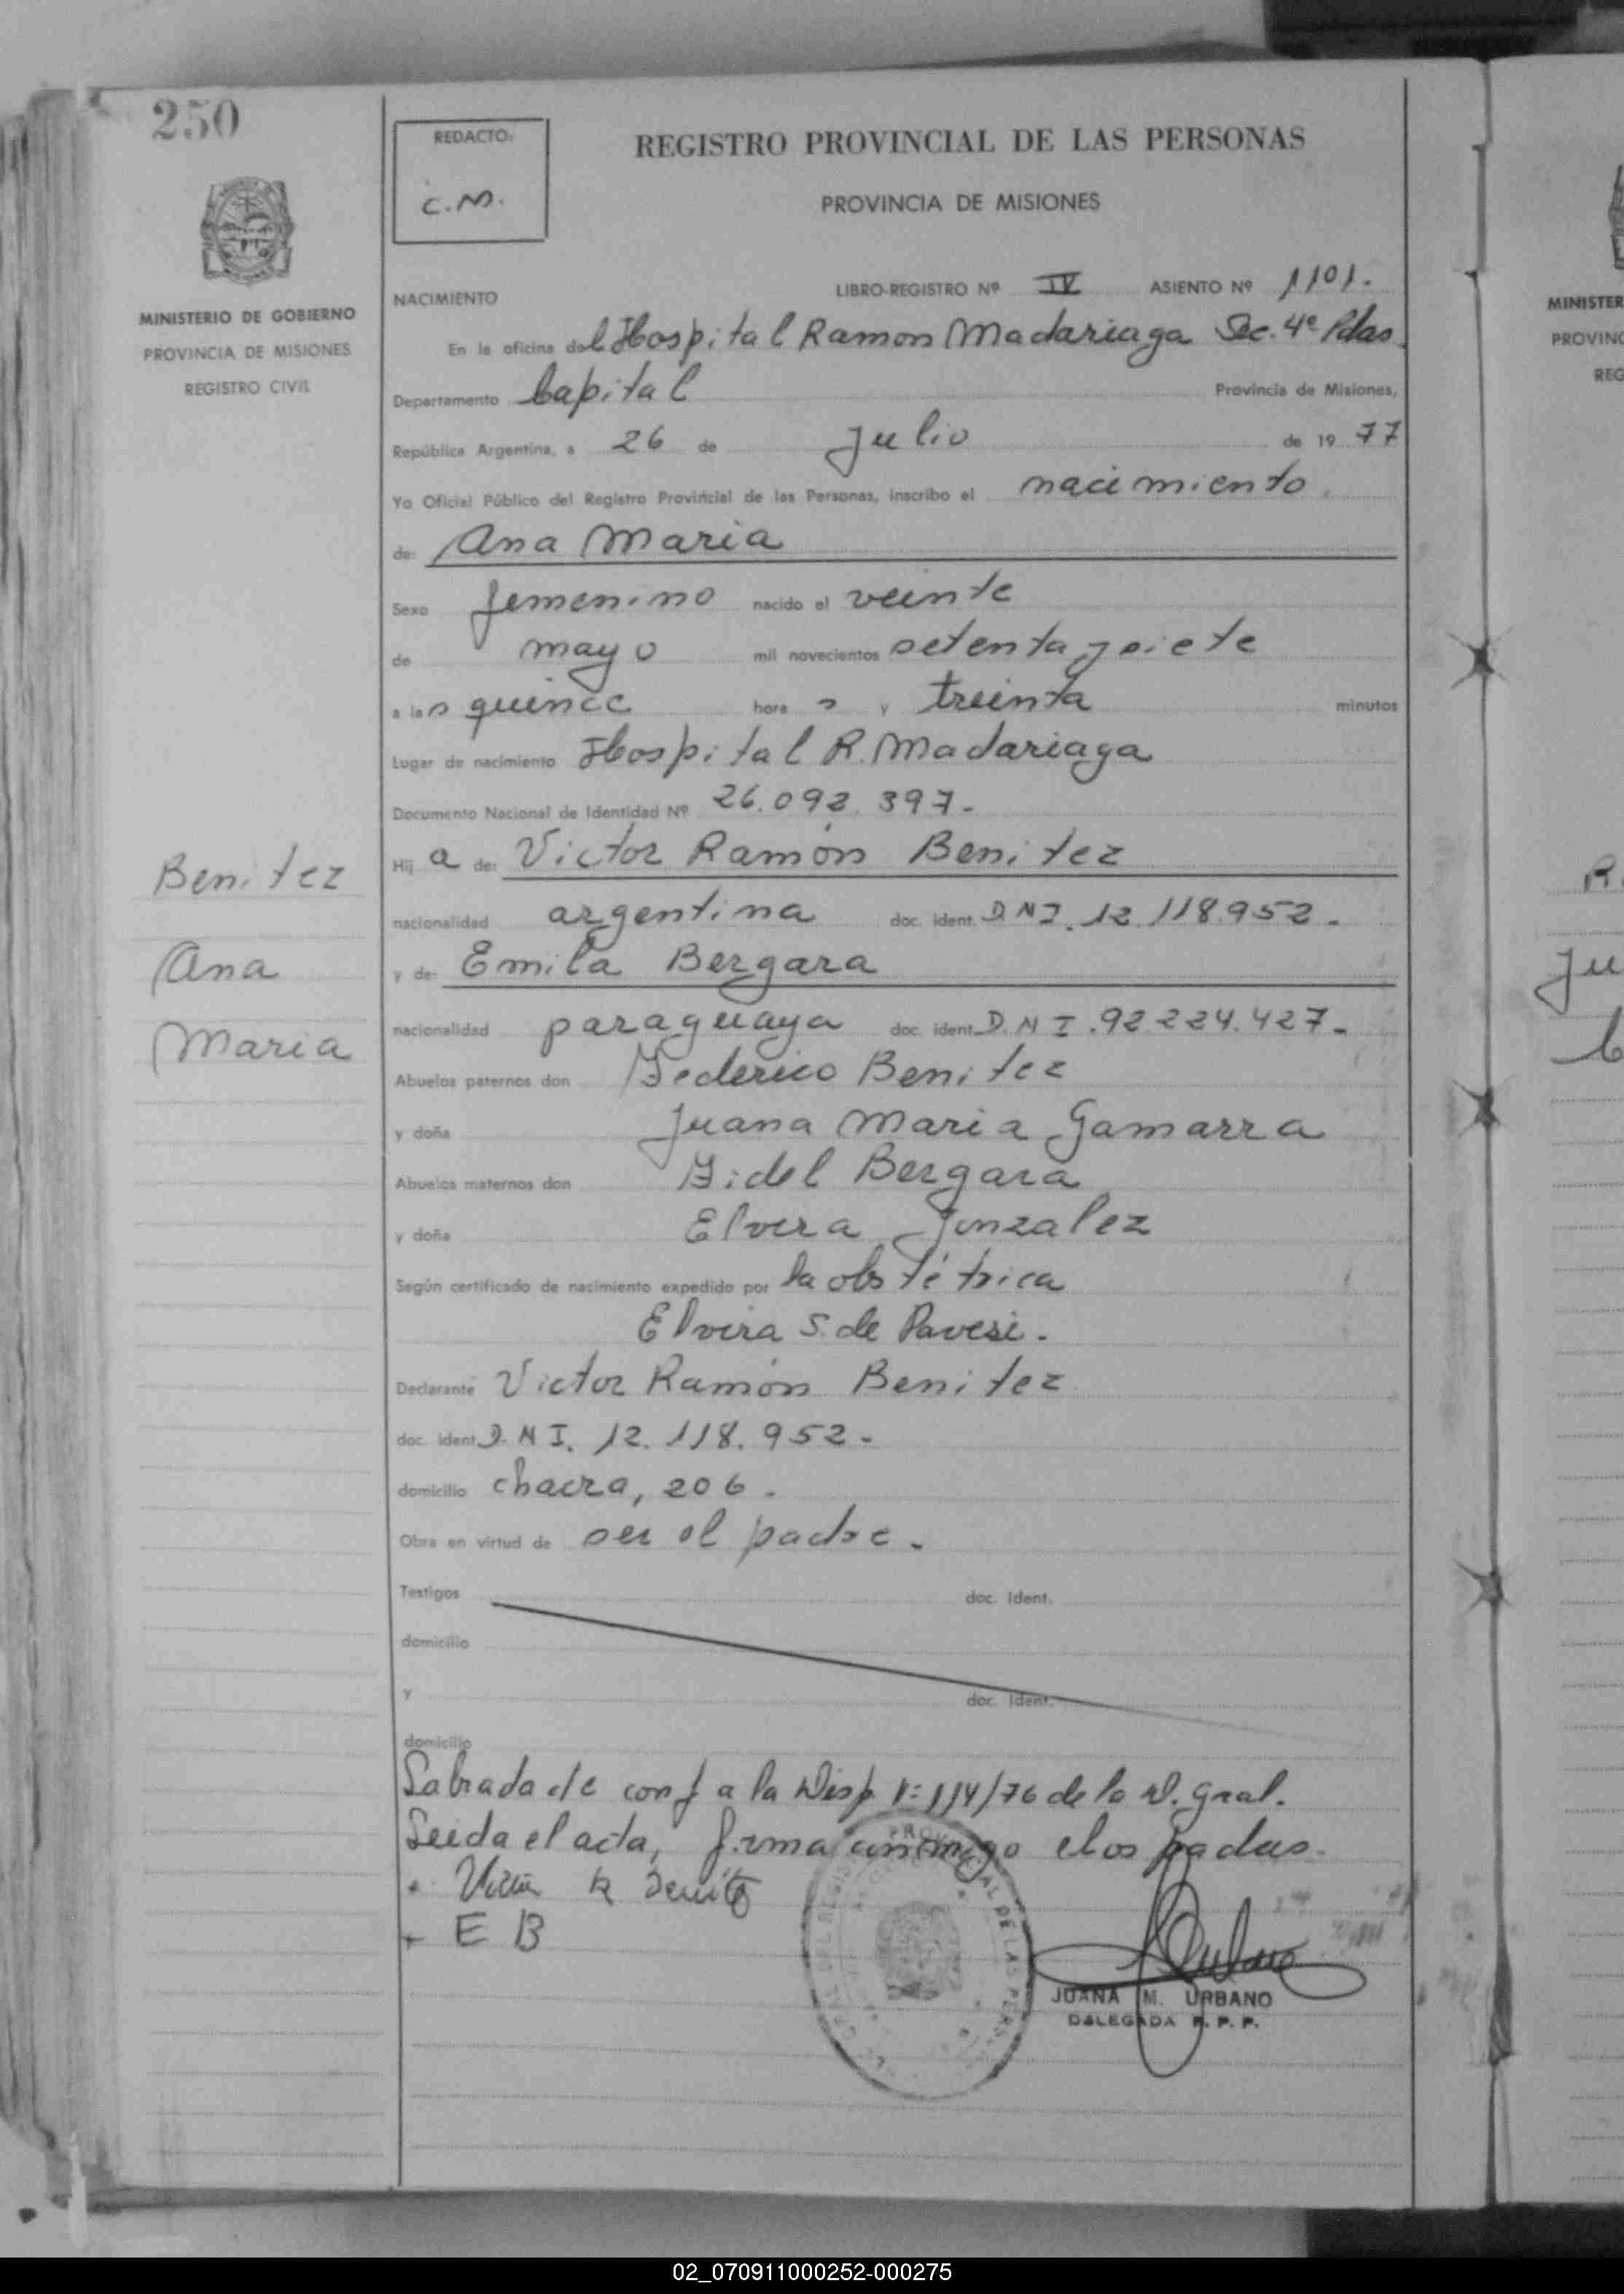 250
REDACTO:
C.M.
REGISTRO PROVINCIAL DE LAS PERSONAS
PROVINCIA DE MISIONES
MINISTERIO DE GOBIERNO
PROVINCIA DE MISIONES
REGISTRO CIVIL
NACIMIENTO LIBRO-REGISTRO Nº IV ASIENTO Nº 1101.
En la oficina del Hospital Ramon Madariaga Sec. 4ª Pdas.
Departamento Capital Provincia de Misiones,
República Argentina, a 26 de Julio de 19 77
Yo Oficial Público del Registro Provincial de las Personas, inscribo el nacimiento.
de: Ana Maria
Sexo femenino nacido el veinte
de mayo mil novecientos setenta y siete
a las quince hora s y treinta minutos
Lugar de nacimiento Hospital R. Madariaga
Documento Nacional de Identidad Nº 26.092.397-
Hij a de: Victor Ramón Benitez
nacionalidad argentina doc. ident. D.N.I. 12.118.952-
y de: Emila Bergara
nacionalidad paraguaya doc. ident. D.N.I. 92.224.427-
Abuelos paternos don Federico Benitez
y doña Juana Maria Gamarra
Abuelos maternos don Fidel Bergara
y doña Elvira Gonzalez
Según certificado de nacimiento expedido por la obstétrica
Elvira S. de Pavesi.
Declarante Victor Ramón Benitez
doc. ident. D.N.I. 12.118.952-
domicilio chacra, 206.
Obra en virtud de ser el padre.
Testigos doc. Ident.
domicilio
y doc. Ident.
domicilio
Labrada de conf a la Disp. Nº 114/76 de la D. Gral.
Leida el acta, firma conmigo los padres.
R Benitez
E B
JUANA M. URBANO
DELEGADA R. P. P.
Benitez
Ana
Maria
MINISTER
PROVINC
REG
02_070911000252-000275